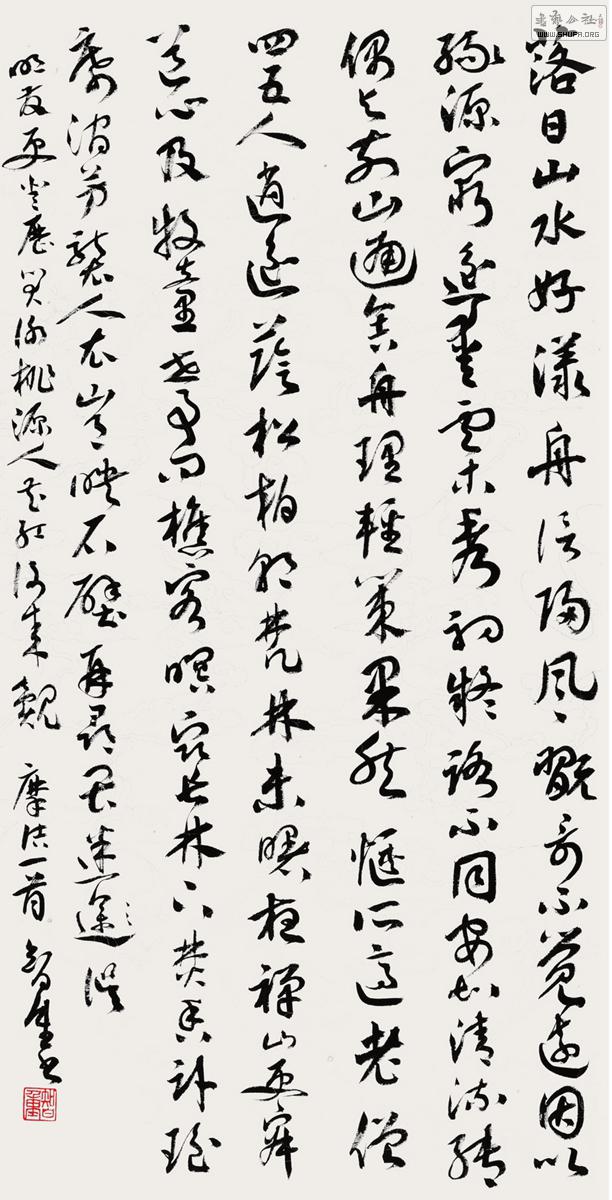 落日山水好漾舟信歸風翫奇不覺遠因以
緣源窮遙愛雲木秀初疑路不同安知清流轉
偶与前山通舍舟理輕策果然愜所適老僧
四五人逍遙蔭松柏朝梵林未曙夜禪山更寂
道心及牧童世事问樵客暝宿長林下焚香卧瑶
席澗芳襲人衣山月映石壁再尋畏迷途誤
明发更登歷笑謝桃源人花紅復来觌 摩诘一首 智
書法公社
WWW.SHUFA.ORG